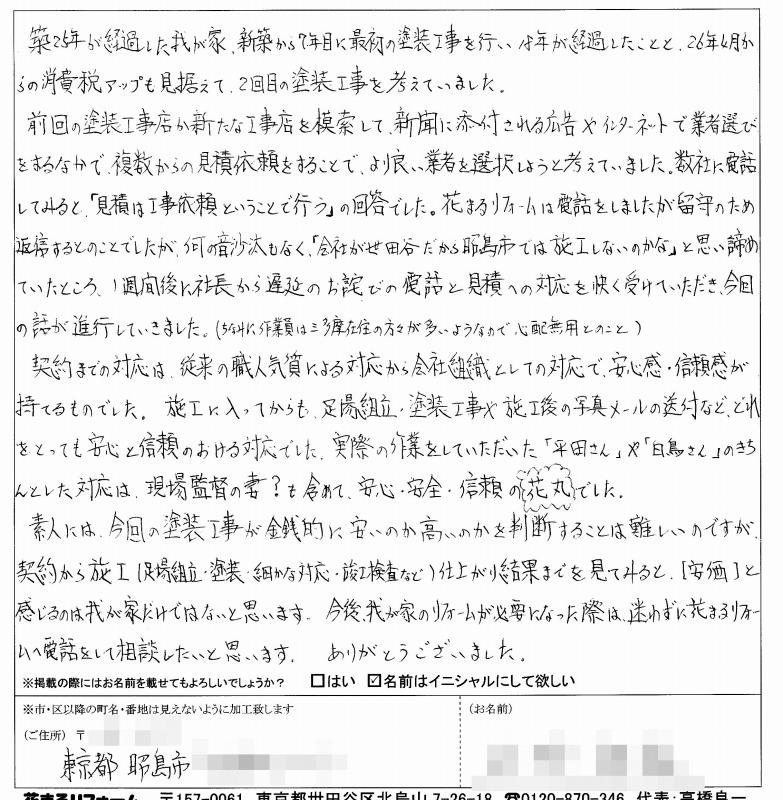 築25年が経過した我が家、新築から7年目に最初の塗装工事を行い、18年が経過したことと、26年4月か
らの消費税アップも見据えて、2回目の塗装工事を考えていました。
前回の塗装工事店か新たな工事店を模索して、新聞に添付される広告やインターネットで業者選び
をするなかで、複数からの見積依頼をすることで、より良い業者を選択しようと考えていました。数社に電話
してみると、「見積は工事依頼ということで行う」の回答でした。花まるリフォームは電話をしましたが留守のため
返信するとのことでしたが、何の音沙汰もなく、「会社が世田谷だから昭島市では施工しないのかな」と思い諦め
ていたところ、1週間後に社長から遅延のお詫での電話と見積への対応を快く受けていただき、今回
の話が進行していきました。(ちなみに作業員は三多摩在住の方々が多いようなので心配無用とのこと)
契約までの対応は、従来の職人気質による対応から会社組織としての対応で、安心感・信頼感が
持てるものでした。施工に入ってからも、足場組立・塗装工事や施工後の写真メールの送付など、どれ
をとっても安心と信頼のおける対応でした。実際の作業をしていただいた「平田さん」や「白鳥さん」のきち
んとした対応は、現場監督の妻?も含めて、安心・安全・信頼の花丸でした。
素人には、今回の塗装工事が金銭的に安いのか高いのかを判断することは難しいのですが、
契約から施工(足場組立・塗装・細かな対応・竣工検査など)仕上がり結果までを見てみると、[安価]と
感じるのは我が家だけではないと思います。今後、我が家のリフォームが必要になった際は、迷わずに花まるリフォー
ムへ電話をして相談したいと思います。 ありがとうございました。
※掲載の際にはお名前を載せてもよろしいでしょうか? □はい ☑名前はイニシャルにして欲しい
※市・区以降の町名・番地は見えないように加工致します
(お名前)
(ご住所) 〒
東京都 昭島市
花まるリフォーム 〒157-0061 東京都世田谷区北烏山7-26-18 ☎0120-870-346 代表:高橋良一